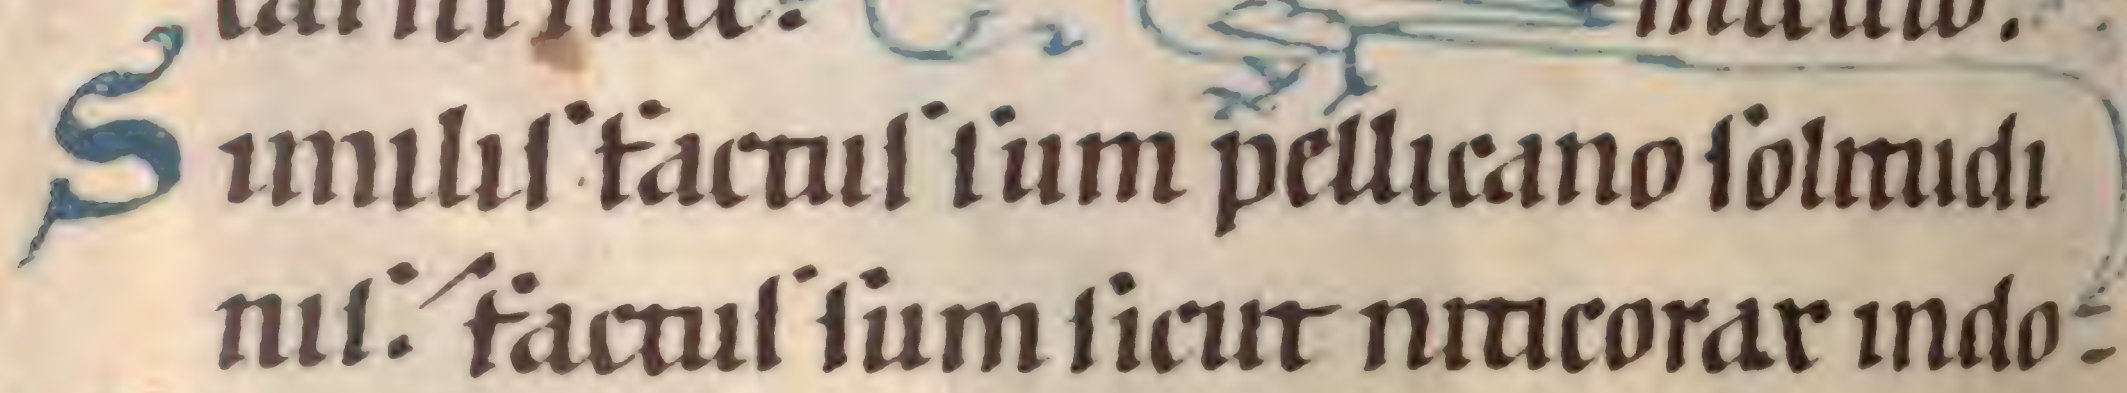 Similis factus sum pellicano solitudi
nis: factus sum sicut niticorax indo-